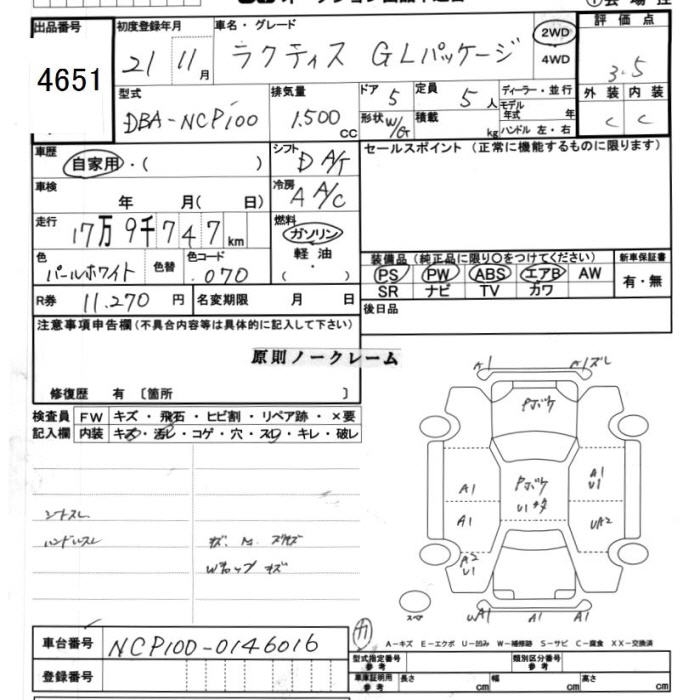 出品番号
4651
初度登録年月
21 11月
車名・グレード
ラクティス GLパッケージ
2WD
4WD
評価点
3.5
外装 内装
C C
型式
DBA-NCP100
排気量
1,500 cc
ドア 5
形状 W/G
定員 5人
積載 kg
ディーラー・並行
モデル年式 年
ハンドル 左・右
車歴
自家用・( )
シフト D A/T
セールスポイント (正常に機能するものに限ります)
車検 年 月( 日)
冷房 A A/C
走行 17万9千747km
燃料
ガソリン
軽油
( ・ )
色 パールホワイト
色替
色コード 070
装備品 (純正品に限り〇をつけてください)
新車保証書
PS PW ABS エアB AW
SR ナビ TV カワ
有・無
R券 11,270円
名変期限 月 日
後日品
注意事項申告欄(不具合内容等は具体的に記入して下さい)
原則ノークレーム
修復歴 有 〔箇所 〕
検査員記入欄
FW キズ・飛石・ヒビ割・リペア跡・×要
内装 キズ・汚レ・コゲ・穴・スレ・キレ・破レ
シートスレ
ハンドルスレ
A1 A1ズレ
Pボケ
A1 A1
Pボケ
A1 U1
UA2
A2 U1
スペア
A1 A1
A-キズ E-エクボ U-凹み W-補修跡 S-サビ C-腐食 XX-交換済
車台番号 NCP100-0146016
登録番号
型式指定番号 参考
類別区分番号 参考
車庫証明用 参考 長さ cm 幅 cm 高さ cm